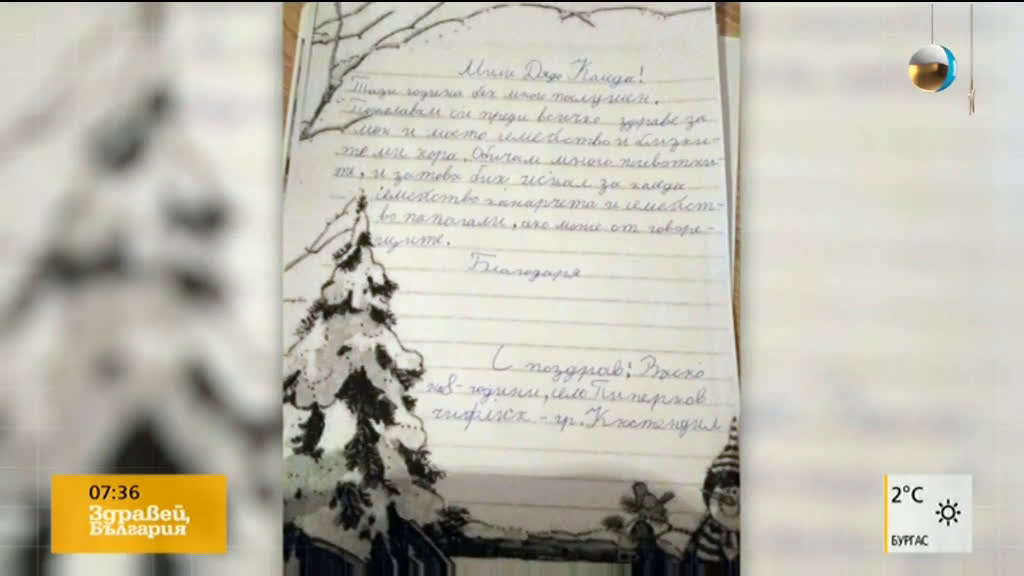 Мили Дядо Коледа!
Тази година бях много послушен.
Пожелавам си преди всичко здраве за
мен и моето семейство и близки-
те ми хора. Обичам много животни-
те, и затова бих искал за коледа
семейство канарчета и семейст-
во папагали, ако може от говоре-
щите.
Благодаря
С поздрав: Васко
на 8-години, село Пиперков
чифлик - гр. Кюстендил
07:36
Здравей,
България
2°C
БУРГАС